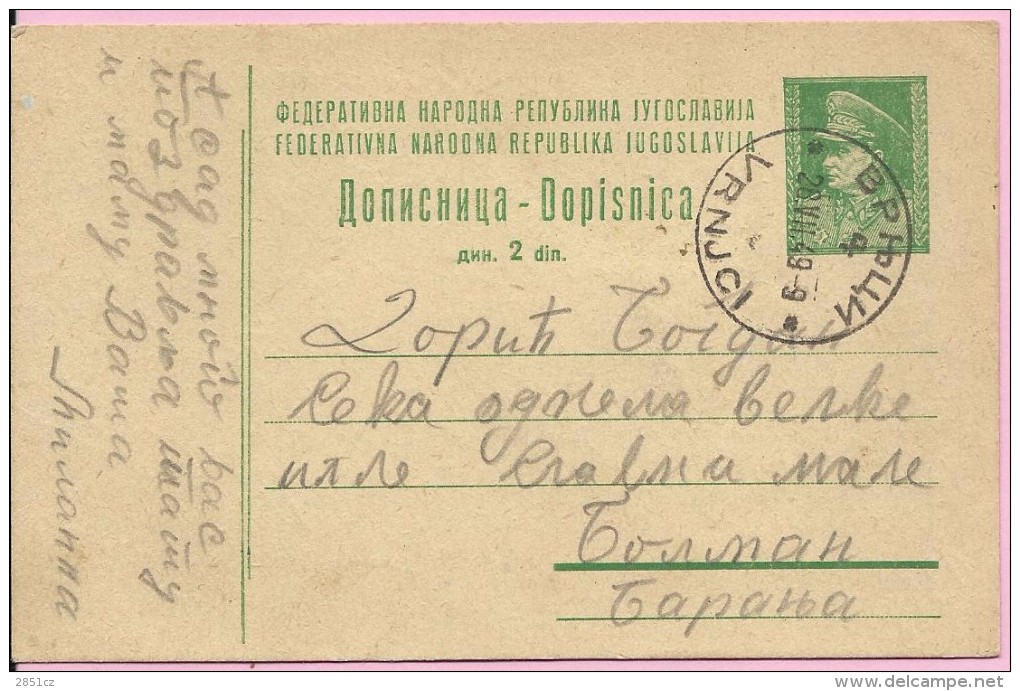 ФЕДЕРАТИВНА НАРОДНА РЕПУБЛИКА ЈУГОСЛАВИЈА
FEDERATIVNA NARODNA REPUBLIKA JUGOSLAVIJA
Дописница - Dopisnica
дин. 2 din.
ВРЊЦИ
VRNJCI
28 VII 49-9
Ћорић Богдан
Сека одјела веље
Славка мале
Болман
Барања
много вас
поздравља тату
и маму Ваша
2851cz
delcampe.net